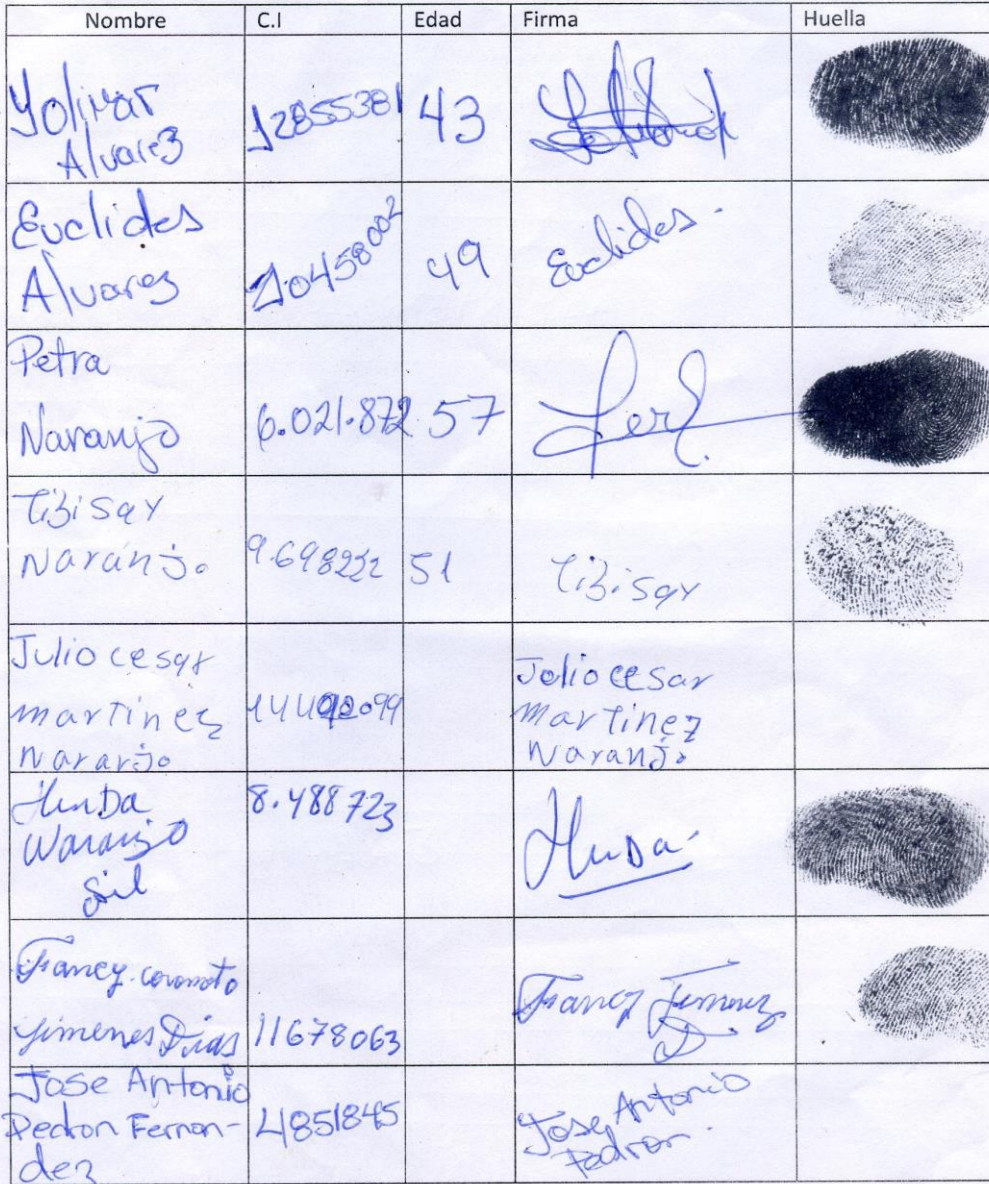 Nombre C.I Edad Firma Huella
Yolivar
Alvarez 12855381 43
Euclides
Alvarez 10458002 49 Euclides
Petra
Naranjo 6.021.872 57
Tibisay
Naranjo 9.698222 51 Tibisay
Julio cesar
martinez
Naranjo
Julio cesar
martinez
Naranjo
Naranjo
Gil
8.488723
Francy coromoto
Yimenes Dias 11678063 Francy Jimenez
Jose Antonio
Pedron Fernan-
dez
4851845
Jose Antonio
Pedron